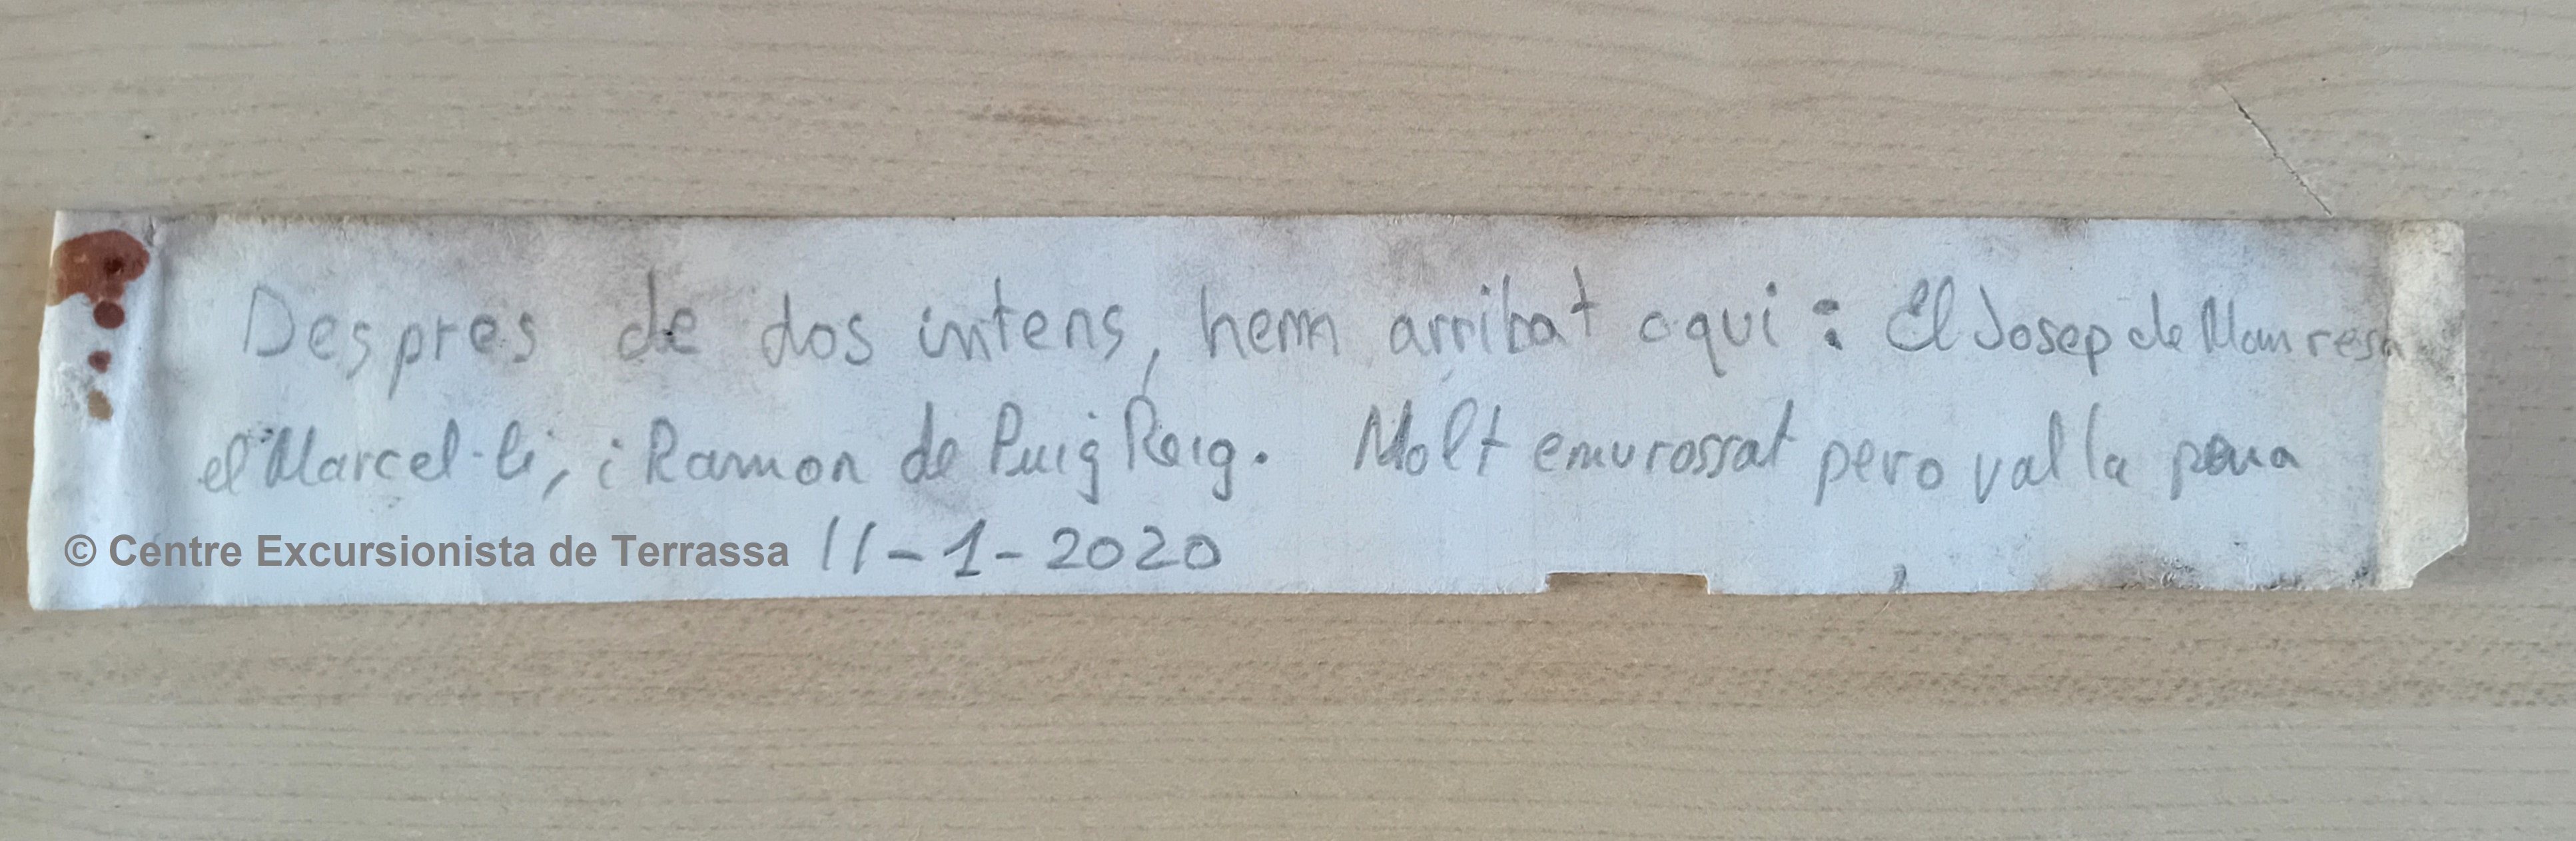 Despres de dos intens, hem arribat aqui : El Josep de Manresa
el Marcel·li, i Ramon de Puig Reig. Molt emurossat pero val la pena
© Centre Excursionista de Terrassa 11-1-2020